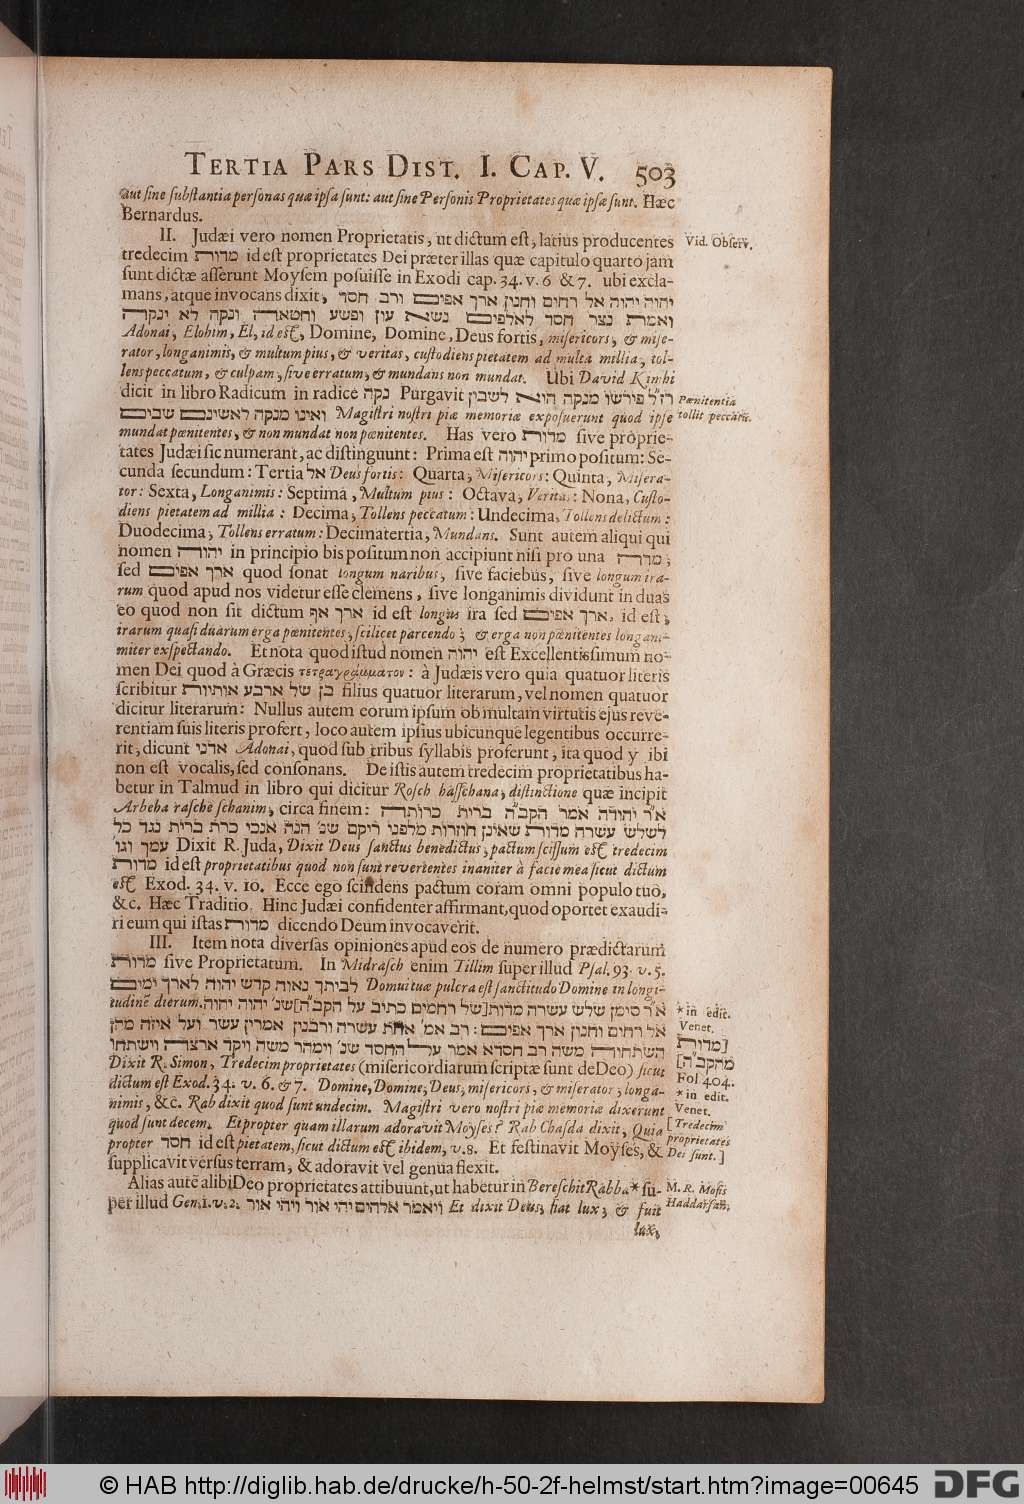 TERTIA PARS DIST. I. CAP. V. 503
aut sine substantia personas quæ ipsa sunt: aut sine Personis Proprietates quæ ipsæ sunt. Hæc
Bernardus.
II. Judæi vero nomen Proprietatis, ut dictum est, latius producentes
Vid. Observ.
tredecim מדות id est proprietates Dei præter illas quæ capitulo quarto jam
sunt dictæ asserunt Moysem posuisse in Exodi cap. 34. v. 6 & 7. ubi excla-
mans, atque invocans dixit, יהוה יהוה אל רחום וחנון ארך אפים ורב חסד
ואמת נצר חסד לאלפים נשא עון ופשע וחטאה ונקה לא ינקה
Adonai, Elohim, El, id est, Domine, Domine, Deus fortis, misericors, & mise-
rator, longanimis, & multum pius, & veritas, custodiens pietatem ad multa millia, tol-
lens peccatum, & culpam, sive erratum, & mundans non mundat. Ubi David Kimhi
dicit in libro Radicum in radice נקה Purgavit רז"ל פירשו מנקה הוא לשבין
Pœnitentia
ואינו מנקה לאשינם שבים Magistri nostri piæ memoriæ exposuerunt quod ipse
tollit peccatū.
mundat pœnitentes, & non mundat non pœnitentes. Has vero מדות sive proprie-
tates Judæi sic numerant, ac distinguunt: Prima est יהוה primo positum: Se-
cunda secundum: Tertia אל Deus fortis: Quarta, Misericors: Quinta, Misera-
tor: Sexta, Longanimis: Septima, Multum pius: Octava, Veritas: Nona, Custo-
diens pietatem ad millia: Decima, Tollens peccatum: Undecima, Tollens delictum:
Duodecima, Tollens erratum: Decimatertia, Mundans. Sunt autem aliqui qui
nomen יהוה in principio bis positum non accipiunt nisi pro una מדה;
sed ארך אפים quod sonat longum naribus, sive faciebus, sive longum ira-
rum quod apud nos videtur esse clemens, sive longanimis dividunt in duas
eo quod non sit dictum ארך אף id est longus ira sed ארך אפים, id est,
irarum quasi duarum erga pœnitentes, scilicet parcendo; & erga non pœnitentes longani-
miter exspectando. Et nota quod istud nomen יהוה est Excellentissimum no-
men Dei quod à Græcis τετραγράμματον: à Judæis vero quia quatuor literis
scribitur בן של ארבע אותיות filius quatuor literarum, vel nomen quatuor
dicitur literarum: Nullus autem eorum ipsum ob multam virtutis ejus reve-
rentiam suis literis profert, loco autem ipsius ubicunque legentibus occurre-
rit, dicunt אדני Adonai, quod sub tribus syllabis proferunt, ita quod y ibi
non est vocalis, sed consonans. De istis autem tredecim proprietatibus ha-
betur in Talmud in libro qui dicitur Rosch hasschana, distinctione quæ incipit
Arbeha rasche schanim, circa finem: א"ר יהודה אמר הקב"ה ברית כרותה
לשלש עשרה מדות שאינן חוזרות מלפני ריקם שנ' הנה אנכי כרת ברית נגד כל
עמך וגו' Dixit R. Juda, Dixit Deus sanctus benedictus, pactum scissum est tredecim
מדות id est proprietatibus quod non sunt revertentes inaniter à facie mea sicut dictum
est Exod. 34. v. 10. Ecce ego scindens pactum coram omni populo tuo,
&c. Hæc Traditio. Hinc Judæi confidenter affirmant, quod oportet exaudi-
ri eum qui istas מדות dicendo Deum invocaverit.
III. Item nota diversas opiniones apud eos de numero prædictarum
מדות sive Proprietatum. In Midrasch enim Tillim super illud Psal. 93. v. 5.
לביתך נאוה קדש יהוה לארך ימים Domui tuæ pulcra est sanctitudo Domine in longi-
tudinē dierum. א"ר סימן שלש עשרה מדות [של רחמים כתיב על הקב"ה] שנ' יהוה יהוה
* in edit.
אל רחום וחנון ארך אפים: רב אמ' אחת עשרה ורבנין אמרין עשר ועל איזה מהן
Venet.
השתחוה משה רב חסדא אמר על החסד שנ' וימהר משה ויקד ארצה וישתחו
[מדות
Dixit R. Simon, Tredecim proprietates (misericordiarum scriptæ sunt de Deo) sicut
מהקב"ה]
dictum est Exod. 34. v. 6. & 7. Domine, Domine, Deus, misericors, & miserator, longa-
Fol 404.
* in edit.
nimis, &c. Rab dixit quod sunt undecim. Magistri vero nostri piæ memoriæ dixerunt
Venet.
quod sunt decem. Et propter quam illarum adoravit Moyses? Rab Chasda dixit, Quia
[Tredecim
propter חסד id est pietatem, sicut dictum est ibidem, v. 8. Et festinavit Moyses, &
proprietates
Dei sunt.]
supplicavit versus terram, & adoravit vel genua flexit.
Alias autē alibi Deo proprietates attibuunt, ut habetur in Bereschit Rabba * su-
M. R. Mosis
per illud Gen. 1. v. 2. ויאמר אלהים יהי אור ויהי אור Et dixit Deus, fiat lux, & fuit
Haddarsan,
lux,
© HAB http://diglib.hab.de/drucke/h-50-2f-helmst/start.htm?image=00645 DFG